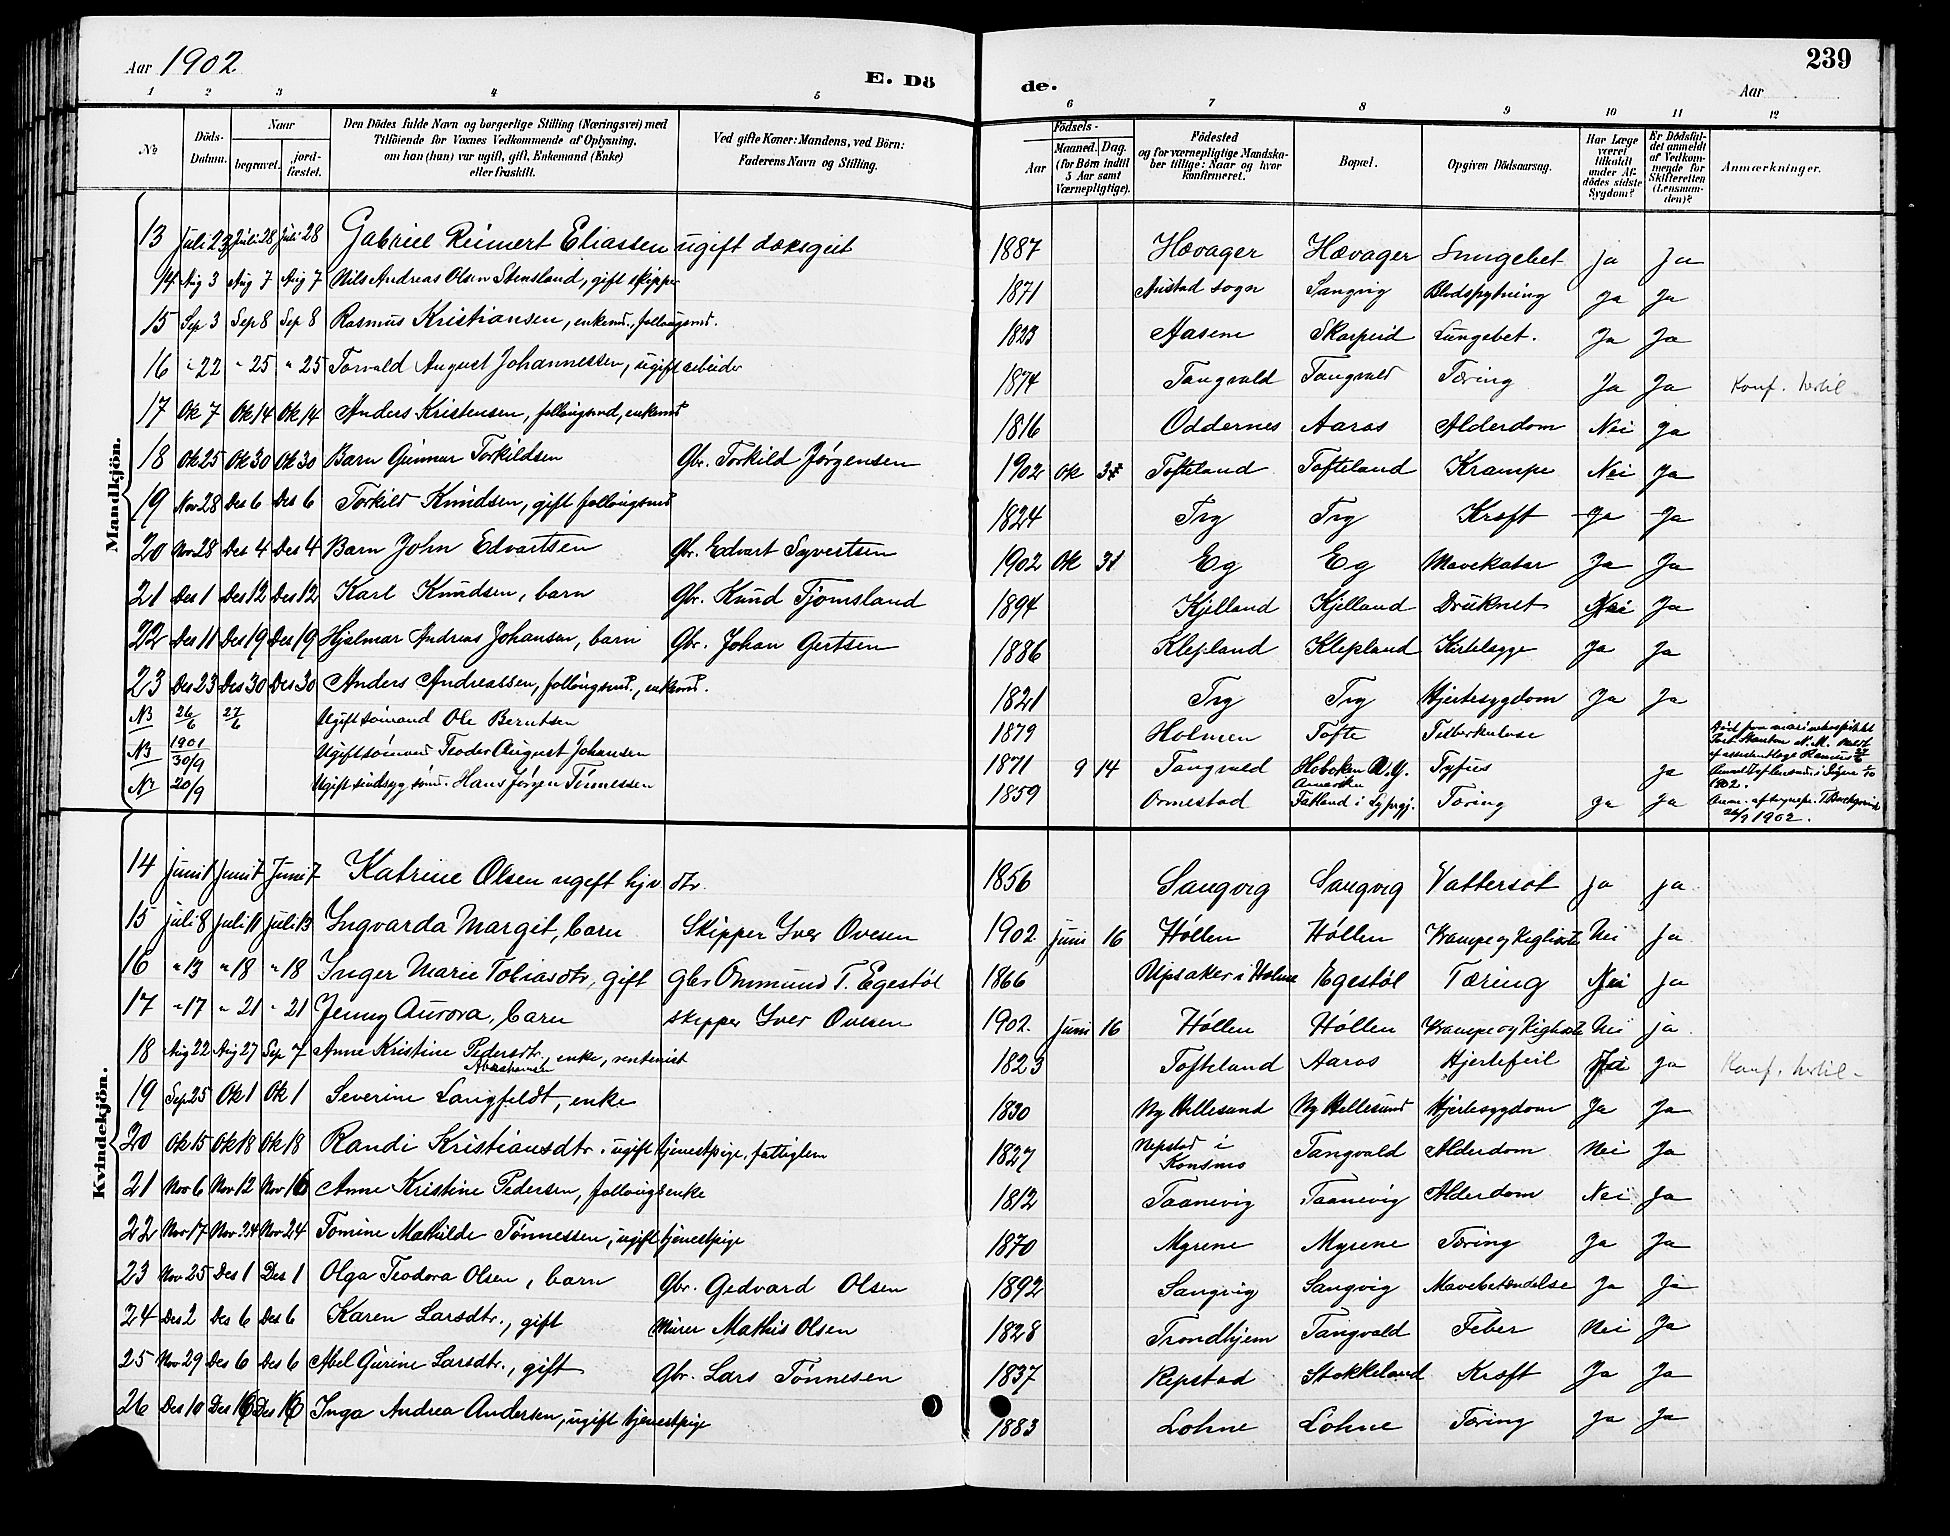 Aar 1902
E. Dö
de.
239
Aar
1 2 3 4 5 6 7 8 9 10 11 12
No
Döds-Datum.
Naar
begravet.
jord-fæstet.
Den Dödes fulde Navn og borgerlige Stilling (Næringsvei) med
Tilföiende for Voxnes Vedkommende af Oplysning,
om han (hun) var ugift, gift, Enkemand (Enke)
eller fraskilt.
Ved gifte Koner: Mandens, ved Börn:
Faderens Navn og Stilling.
Födsels-
Aar
Maaned. Dag.
(for Børn indtil
5 Aar samt
Værnepligtige).
Födested
og for værnepligtige Mandska-
ber tillige: Naar og hvor
konfirmeret.
Bopæl.
Opgiven Dödsaarsag.
Har Læge
været
tilkaldt
under Af-
dödes sidste
Sygdom?
Er Dödsfal-
det anmeldt
af Vedkom-
mende for
Skifteretten
(Lensman-
den)?
Anmærkninger.
Mandkjön.
13 Juli 23 Juli 28 Juli 28 Gabriel Reinert Eliassen ugift 1887 Hævager Hævager Lungebet ja Ja
14 Aug 3 Aug 7 Aug 7 Nils Andreas Olsen Stensland, gift skipper 1871 sogn Sangvig Blodspytning Ja Ja
15 Sep 3 Sep 8 Sep 8 Rasmus Kristiansen, enkemd., follaugsmd. 1823 Aasene Skarpeid Lungebet. Ja Ja
16 " 22 " 25 " 25 Torvald August Johannessen, ugift arbeider 1874 Tangvald Tangvald Tæring Ja Ja Konf. hertil
17 Ok 7 Ok 14 Ok 14 Anders Kristensen, follaugsmd, enkemd 1816 Oddernes Aaros Alderdom Nei Ja
18 Ok 25 Ok 30 Ok 30 Barn Gunnar Torkildsen Gbr. Torkild Jørgensen 1902 Ok Tofteland Tofteland Krampe Nei Ja
19 Nov 28 Des 6 Des 6 Torkild Knudsen, gift follaugsmd 1824 Try Try Kræft Ja Ja
20 Nov 28 Des 4 Des 4 Barn John Edvartsen Gbr. Edvart Syvertsen 1902 Ok 31 Eg Eg Mavekatar Ja Ja
21 Des 1 Des 12 Des 12 Karl Knudsen, barn Gbr. Knud Tjomsland 1894 Kjelland Kjelland Druknet Nei Ja
22 Des 11 Des 19 Des 19 Hjalmar Andreas Johansen, barn Gbr. Johan Gertsen 1886 Klepland Klepland Kirtelsyge Ja Ja
23 Des 23 Des 30 Des 30 Anders Andreassen, follaugsmd., enkemd. 1821 Try Try Hjertesygdom Ja Ja
NB 26/6 27/6 Ugift sømand Ole Berntsen 1879 Holmen Tofte Tuberkulose
NB 1901 30/9 Ugift sømand Teodor August Johansen 1871 9 14 Tangvald Hoboken N.Y. Amerika Tyfus Ja
NB 20/9 Ugift sindssyg sømd. Hans Jørgen Tønnessen 1859 Ormestad Tæring Ja Ja
26/9 1902.
Kvindekjön.
14 Juni 1 Juni 7 Juni 7 Katrine Olsen ugift hjv dtr. 1856 Sangvig Sangvig Vattersot ja ja
15 juli 8 juli 11 juli 13 Ingvarda Margit, barn Skipper Iver Ovesen 1902 juni 16 Høllen Høllen Krampe og Kighoste Nei ja
16 " 13 " 18 " 18 Inger Marie Tobiasdtr, gift gbr Ommund T. Egestøl 1866 Upsaker i Holme Egestøl Tæring Nei ja
17 " 17 " 21 " 21 Jenny Aurora, barn skipper Iver Ovesen 1902. juni 16 Høllen Høllen Krampe og Kighoste Nei ja
18 Aug 22 Aug 27 Sep 7 Anne Kristine Pedersdtr., enke, rentenist 1823 Tofteland Aaros Hjertefeil ja Konf. hertil
19 Sep 25 Ok 1 Ok 1 Severine Langfeldt, enke 1830 Ny Hellesund Ny Hellesund Hjertesygdom Ja Ja
20 Ok 15 Ok 18 Ok 18 Randi Kristiansdtr. ugift tjenestpige, fattiglem 1827 Repstad i Konsmo Tangvald Alderdom Nei Ja
21 Nov 6 Nov 12 Nov 16 Anne Kristine Pedersen, follaugsenke 1812 Taanevig Taanevig Alderdom Nei Ja
22 Nov 17 Nov 24 Nov 24 Tomine Mathilde Tønnessen, ugift tjenestpige 1870 Myrene Myrene Tæring Ja Ja
23 Nov 25 Des 1 Des 1 Olga Teodora Olsen, barn Gbr. Gedvard Olsen 1892 Sangvig Sangvig Mavebetændelse Ja Ja
24 Des 2 Des 6 Des 6 Karen Larsdtr., gift Murer Mathis Olsen 1828 Trondhjem Tangvald Feber Nei Ja
25 Nov 29 Des 6 Des 6 Abel Gurine Larsdtr., gift Gbr. Lars Tønnesen 1837 Repstad Stokkeland Kræft Ja Ja
26 Des 10 Des 16 Des 16 Inga Andrea Andersen, ugift tjenestpige 1883 Lohne Lohne Tæring Ja Ja